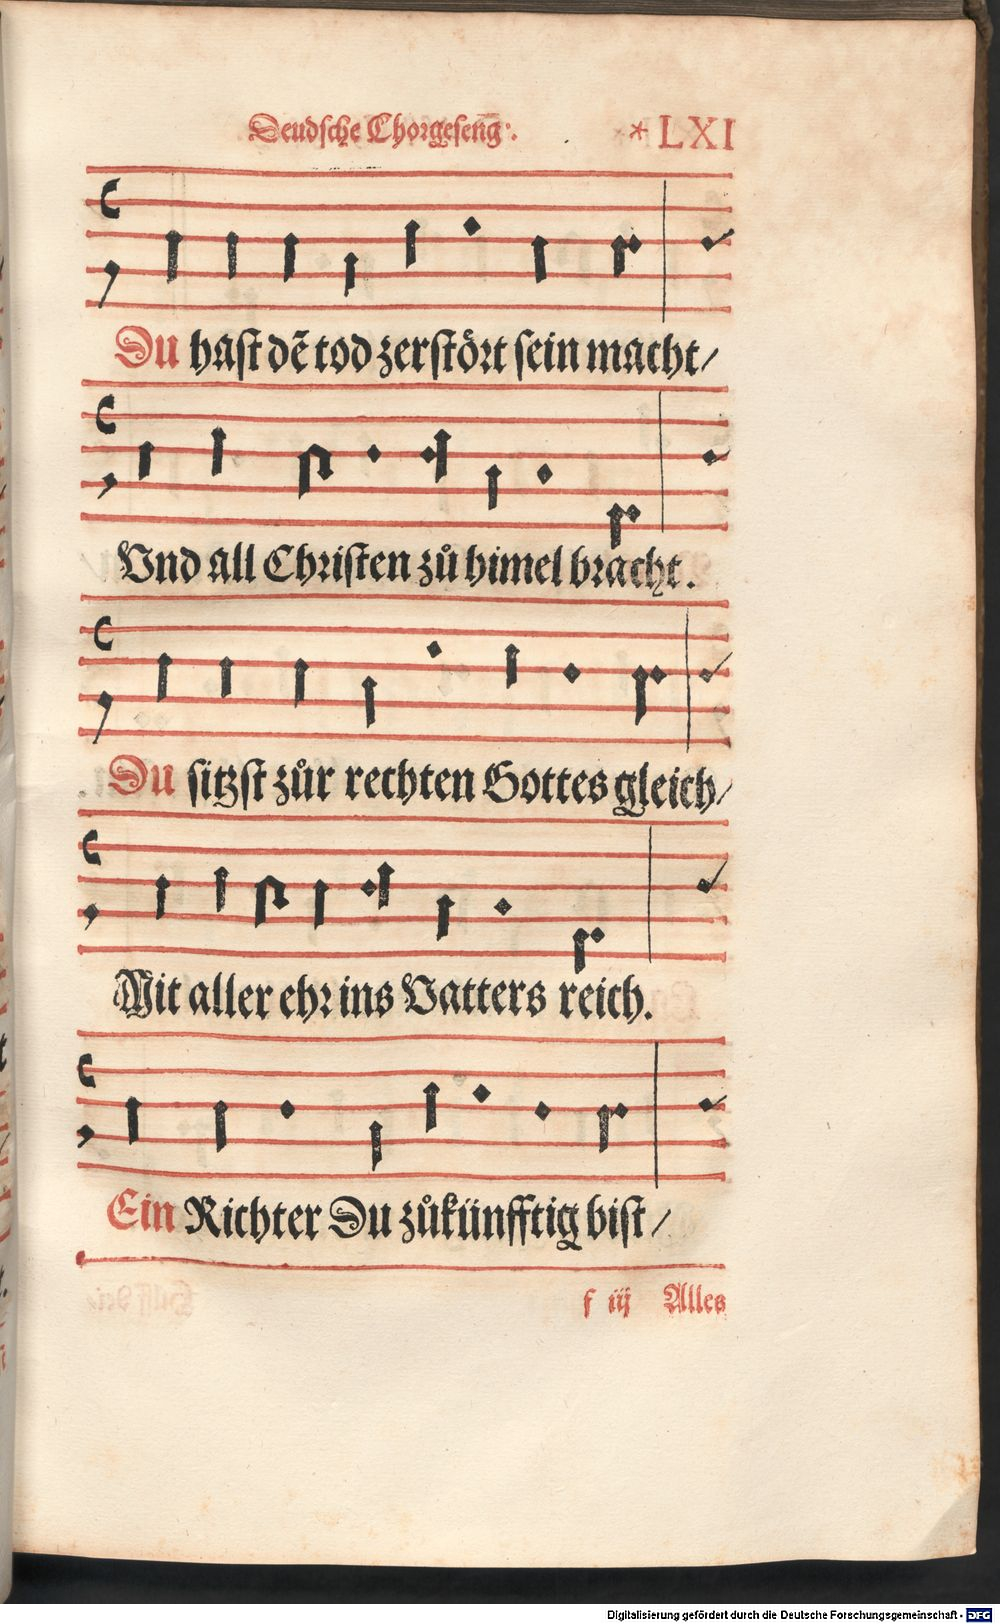 Deudsche Chorgeseng. * LXI
Du hast dē tod zerstört sein macht/
Vnd all Christen zů himel bracht.
Du sitzst zůr rechten Gottes gleich/
Mit aller ehr ins Vatters reich.
Ein Richter Du zůkünfftig bist/
f iij Alles
Digitalisierung gefördert durch die Deutsche Forschungsgemeinschaft - DFG